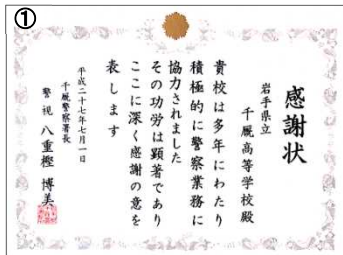 ①
感謝状
岩手県立
千厩高等学校殿
貴校は多年にわたり
積極的に警察業務に
協力されました
その功労は顕著であり
ここに深く感謝の意を
表します
平成二十七年七月一日
千厩警察署長
警視 八重樫 博美